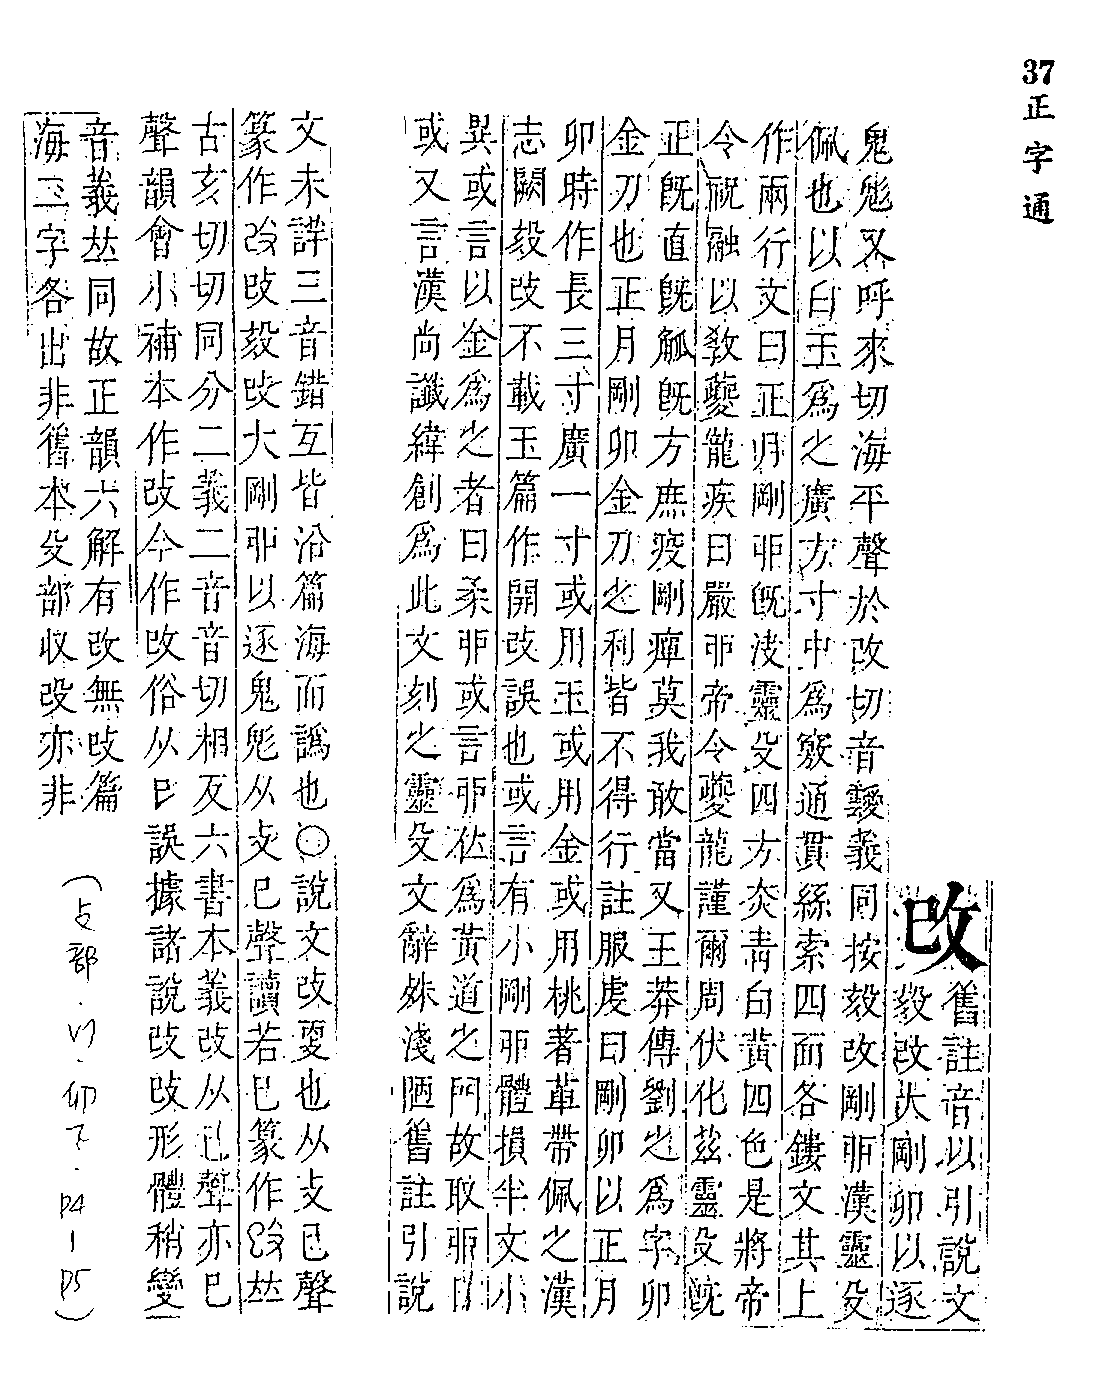 37 正字通
攺
舊註音以引說文
毅攺大剛卯以逐
鬼鬽又呼來切海平聲於改切音靉義同按毅改剛卯漢靈殳
佩也以白玉爲之廣方寸中爲竅通貫絲索四面各鏤文其上
作兩行文曰正月剛卯旣泼靈殳四方赤靑白黃四色是將帝
令祝融以敎夔龍疾日嚴卯帝令夔龍謹爾周伏化茲靈殳旣
正旣直旣觚旣方庶疫剛癉莫我敢當又王莽傳劉之爲字卯
金刀也正月剛卯金刀之利皆不得行註服虔曰剛卯以正月
卯時作長三寸廣一寸或用玉或用金或用桃著革帶佩之漢
志闕毅攺不載玉篇作開攺誤也或言有小剛卯體損半文小
異或言以金爲之者曰柔卯或言卯位爲黃道之門故取卯日
或又言漢尚讖緯創爲此文刻之靈殳文辭殊淺陋舊註引說
文未詳三音錯互皆沿篇海而譌也○說文改更也从攴己聲
篆作改攺毅攺大剛卯以逐鬼鬽从攴巳聲讀若巳篆作攺𠀤
古亥切切同分二義二音音切相反六書本義改从己聲亦巳
聲韻會小補本作攺今作改俗从巳誤據諸說改攺形體稍變
音義𠀤同故正韻六解有改無攺篇
海三字各出非舊本殳部收㱾亦非
(攴部.卯下.P4-P5)